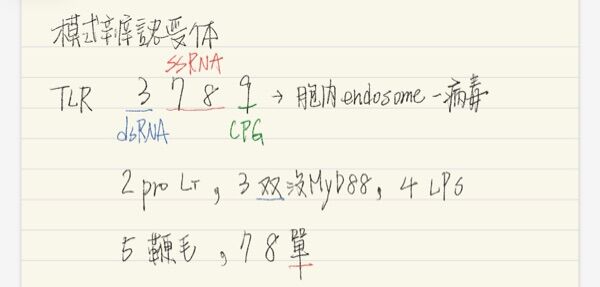 模式辨認受体
ssRNA
TLR 3 7 8 9 → 胞内 endosome - 病毒
dsRNA CPG
2 pro LT, 3 双没MyD88, 4 LPS
5 鞭毛, 7 8 單